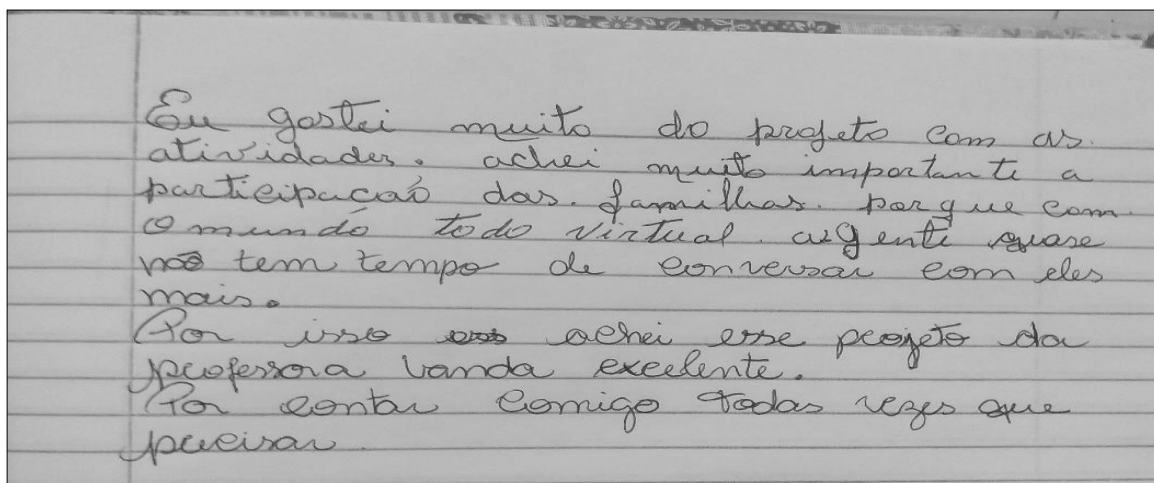 Eu gostei muito do projeto com as.
atividades. achei muito importante a
participacaõ das. familhas. porque com.
o mundo todo virtual. agente quase
não tem tempo de conversar com eles
mais.
Por isso achei esse projeto da
professora Vanda excelente.
Por contar comigo todas vezes que
precisar.